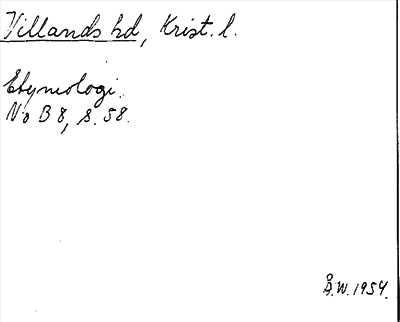 Villands hd, Krist. l.
Etymologi.
NoB 8, s. 58.
Å.W. 1954.